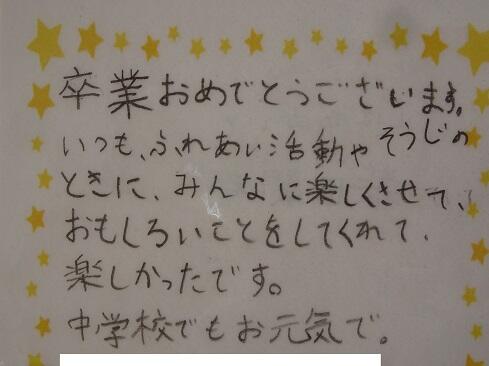 卒業おめでとうございます。
いつも、ふれあい活動やそうじの
ときに、みんなに楽しくさせて、
おもしろいことをしてくれて、
楽しかったです。
中学校でもお元気で。